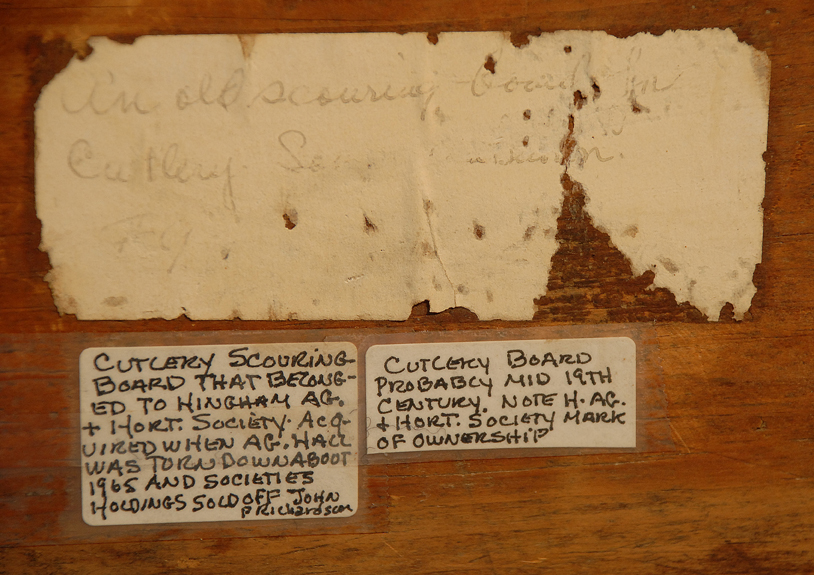 An old scouring board for
Cutlery
CUTLERY SCOURING
BOARD THAT BELONG-
ED TO HINGHAM AG.
+ HORT. SOCIETY. ACQ-
UIRED WHEN AG. HALL
WAS TORN DOWN ABOUT
1965 AND SOCIETIES
HOLDINGS SOLD OFF JOHN
P RICHARDSON
CUTLERY BOARD
PROBABLY MID 19TH
CENTURY. NOTE H. AG.
+ HORT. SOCIETY MARK
OF OWNERSHIP